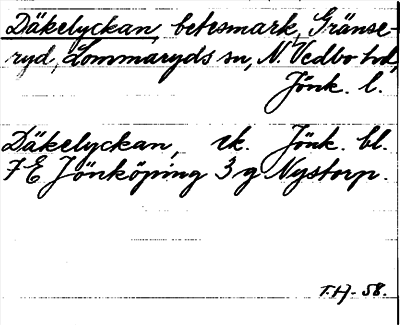 Däkelyckan, betesmark, Gränse-
ryd, Lommaryds sn, N. Vedbo hd,
Jönk. l.
Däkelyckan, ek. Jönk. bl.
7E Jönköping 3 g Nystorp.
T.H-58.